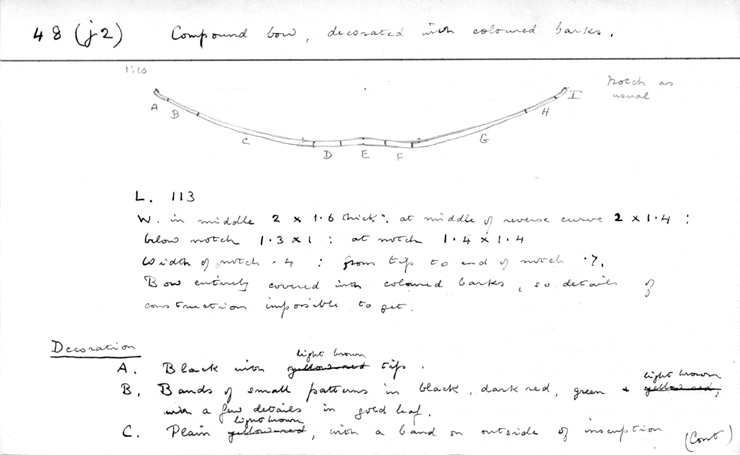 48 (j2) Compound bow, decorated with coloured barks.
1:10
Notch as
usual
A B C D E F G H I
L. 113
W. in middle 2 x 1.6 thick : at middle of reverse curve 2 x 1.4 :
below notch 1.3 x 1 : at notch 1.4 x 1.4
Width of notch .4 : from tip to end of notch .7.
Bow entirely covered with coloured barks, so details of
construction impossible to get.
Decoration
light brown
A. Black with yellow red tips.
light brown
B. Bands of small patterns in black, dark red, green + yellow red,
with a few details in gold leaf.
light brown
C. Plain yellow red, with a band on outside of inscription
(Cont)